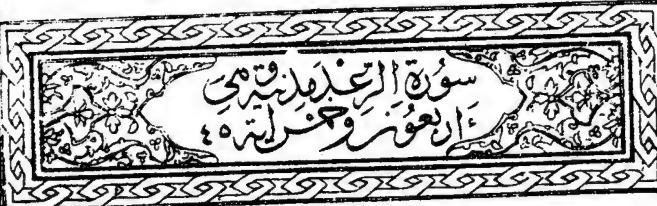 سورة الرعد مدنية وهي
اربعون وخمس اية ٤٥